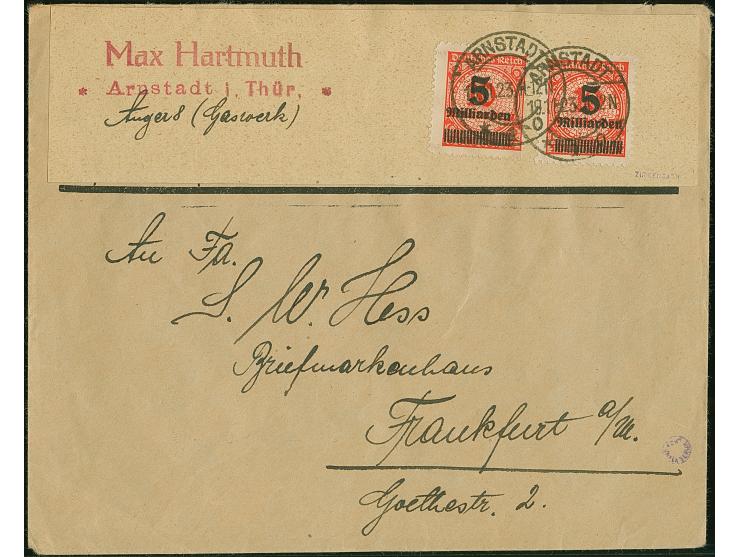 Max Hartmuth
* Arnstadt i. Thür. *
Anger 8 (Gaswerk)
ARNSTADT
ARNSTADT
Reich
5
Milliarden
5
Milliarden
An Fa.
S. W. Hess
Briefmarkenhaus
Frankfurt a/M.
Goethestr. 2.